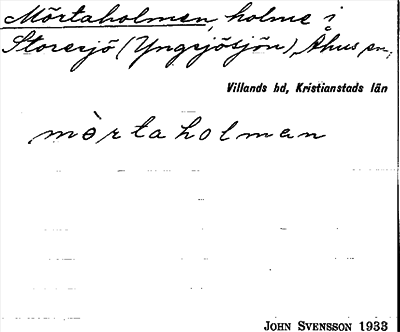 Mörtaholmen, holme i
Storesjö (Yngsjösjön), Åhus sn,
Villands hd, Kristianstads län
mè̀rtaholman
JOHN SVENSSON 1933